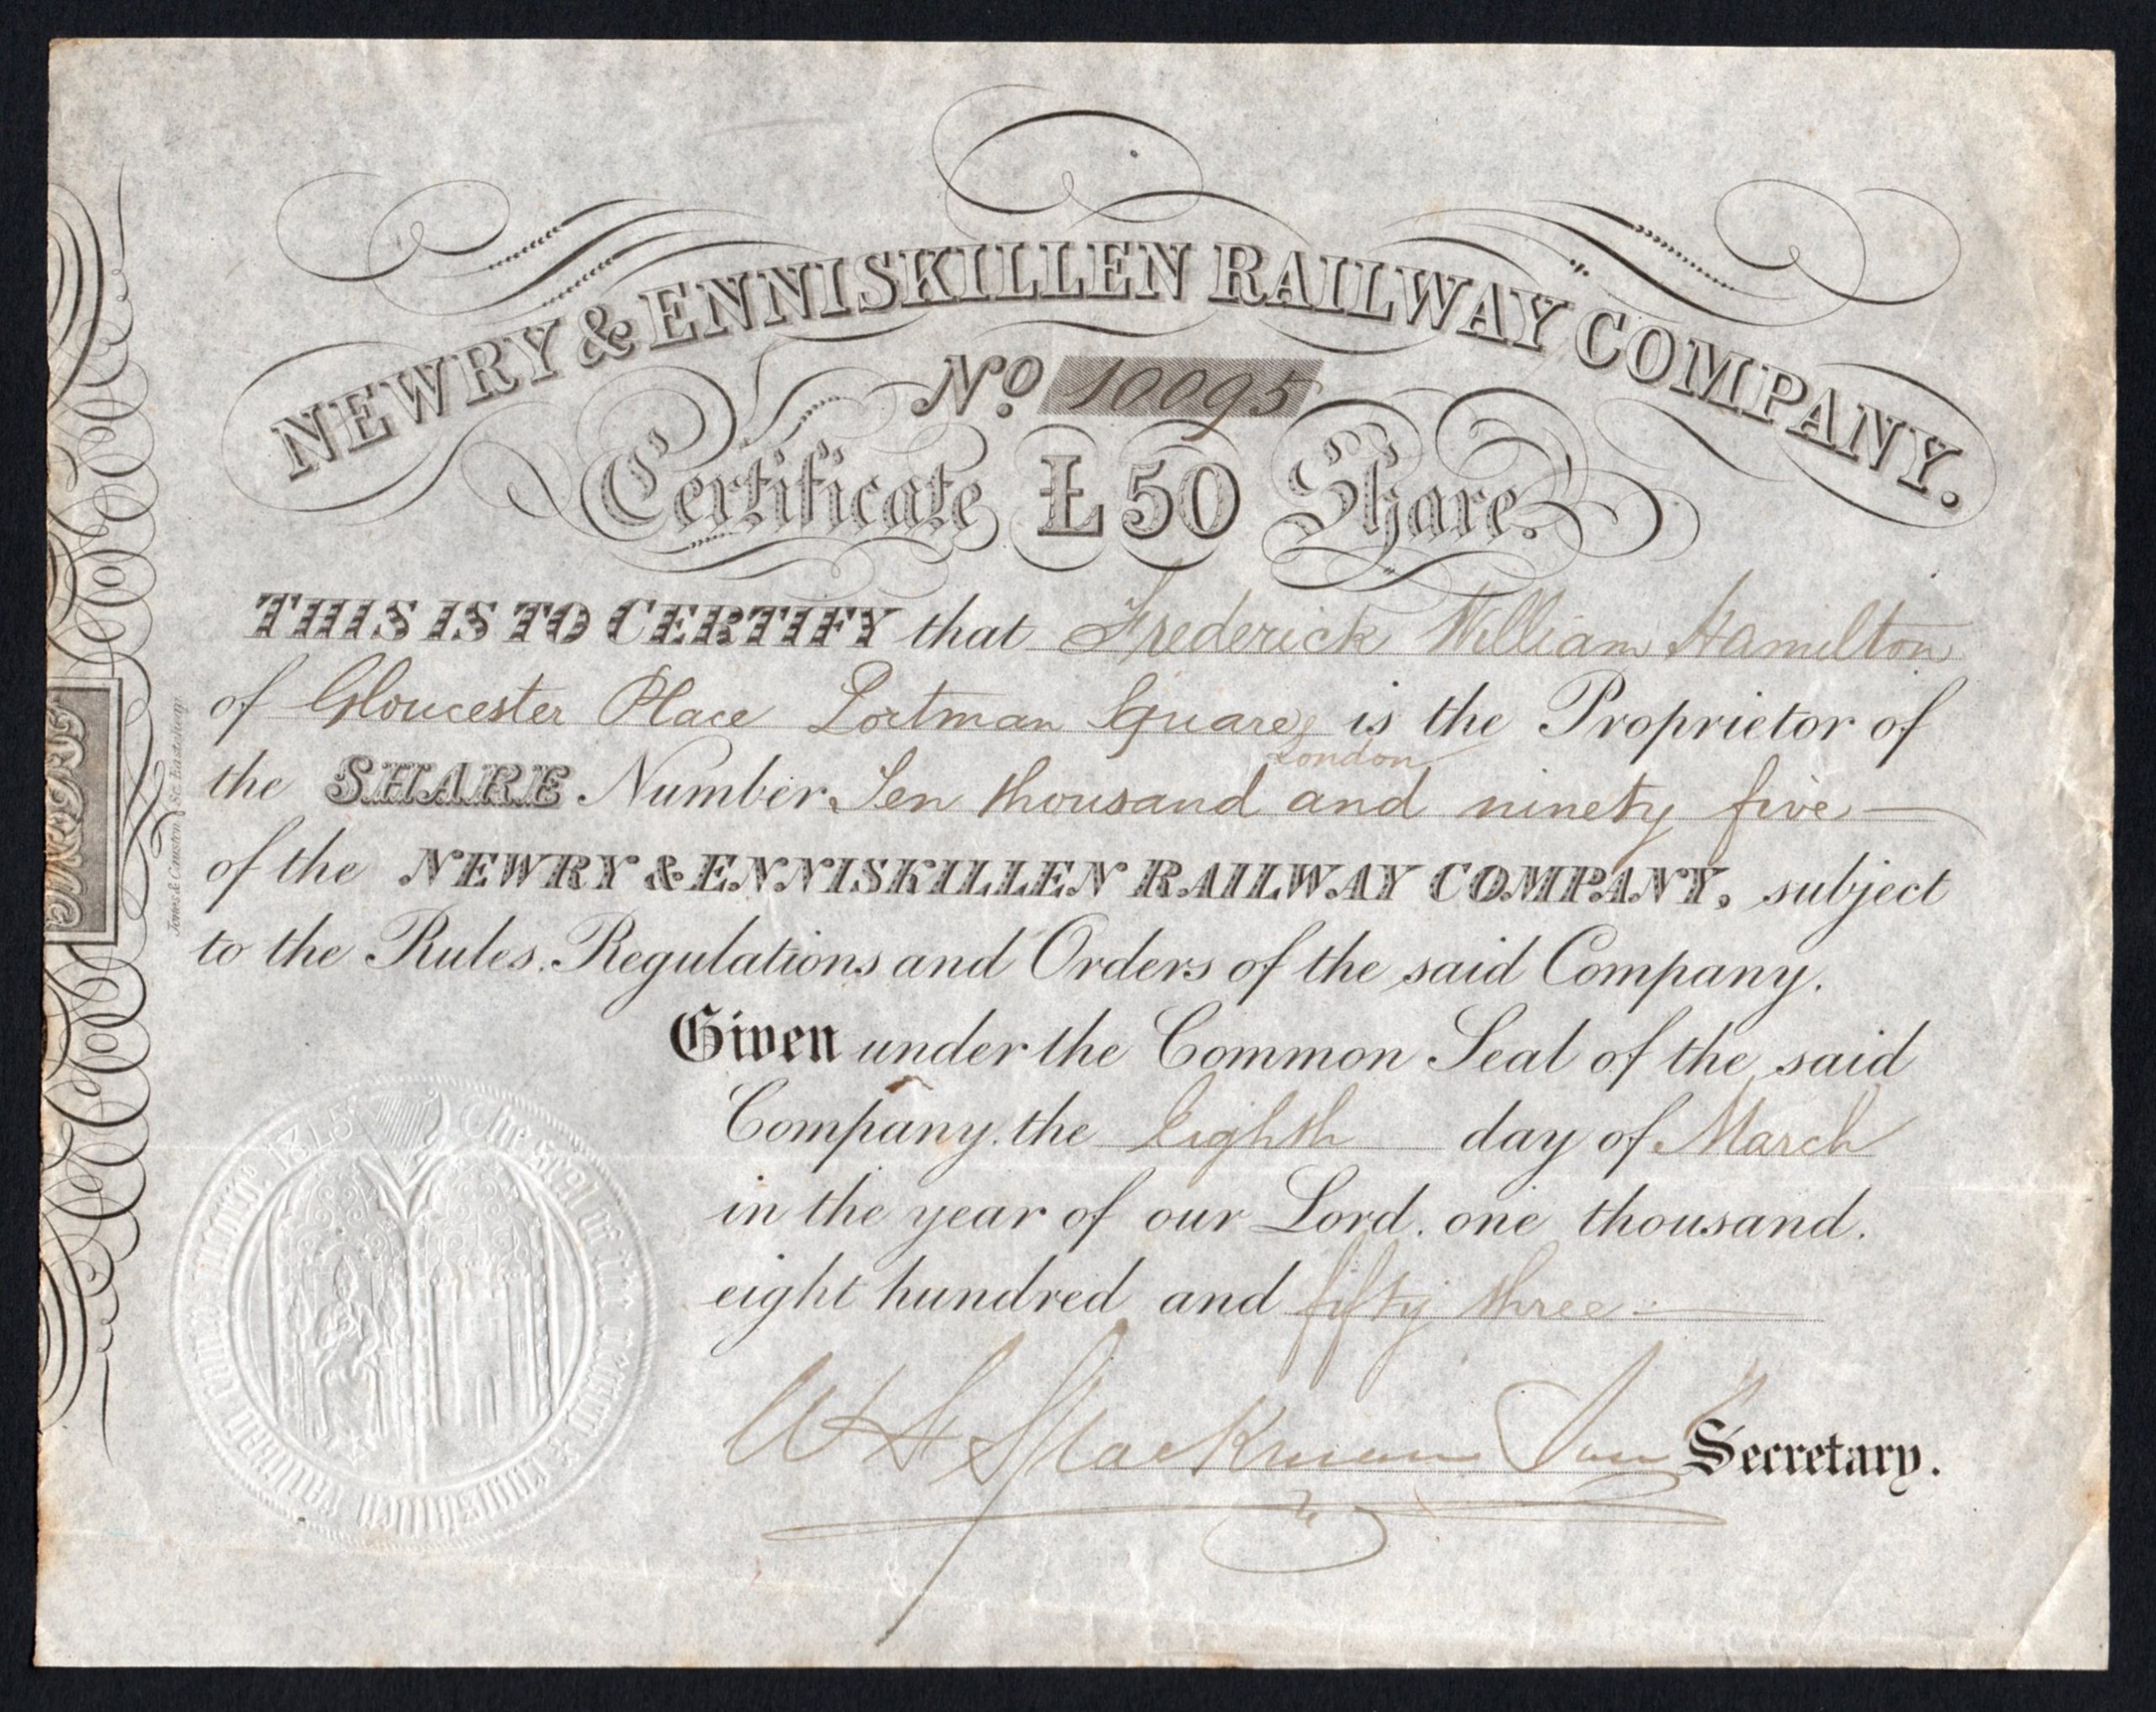 NEWRY & ENNISKILLEN RAILWAY COMPANY.
No. 10095
Certificate £50 Share.
THIS IS TO CERTIFY that Frederick William Hamilton
of Gloucester Place Portman Square is the Proprietor of
London
the SHARE Number Ten thousand and ninety five
of the NEWRY & ENNISKILLEN RAILWAY COMPANY, subject
to the Rules, Regulations and Orders of the said Company.
Given under the Common Seal of the said
Company, the Eighth day of March
in the year of our Lord, one thousand.
eight hundred and fifty three
Secretary.
Jones & Causton, Sc. Eastcheap
The seal of the newry & enniskillen railway 1845